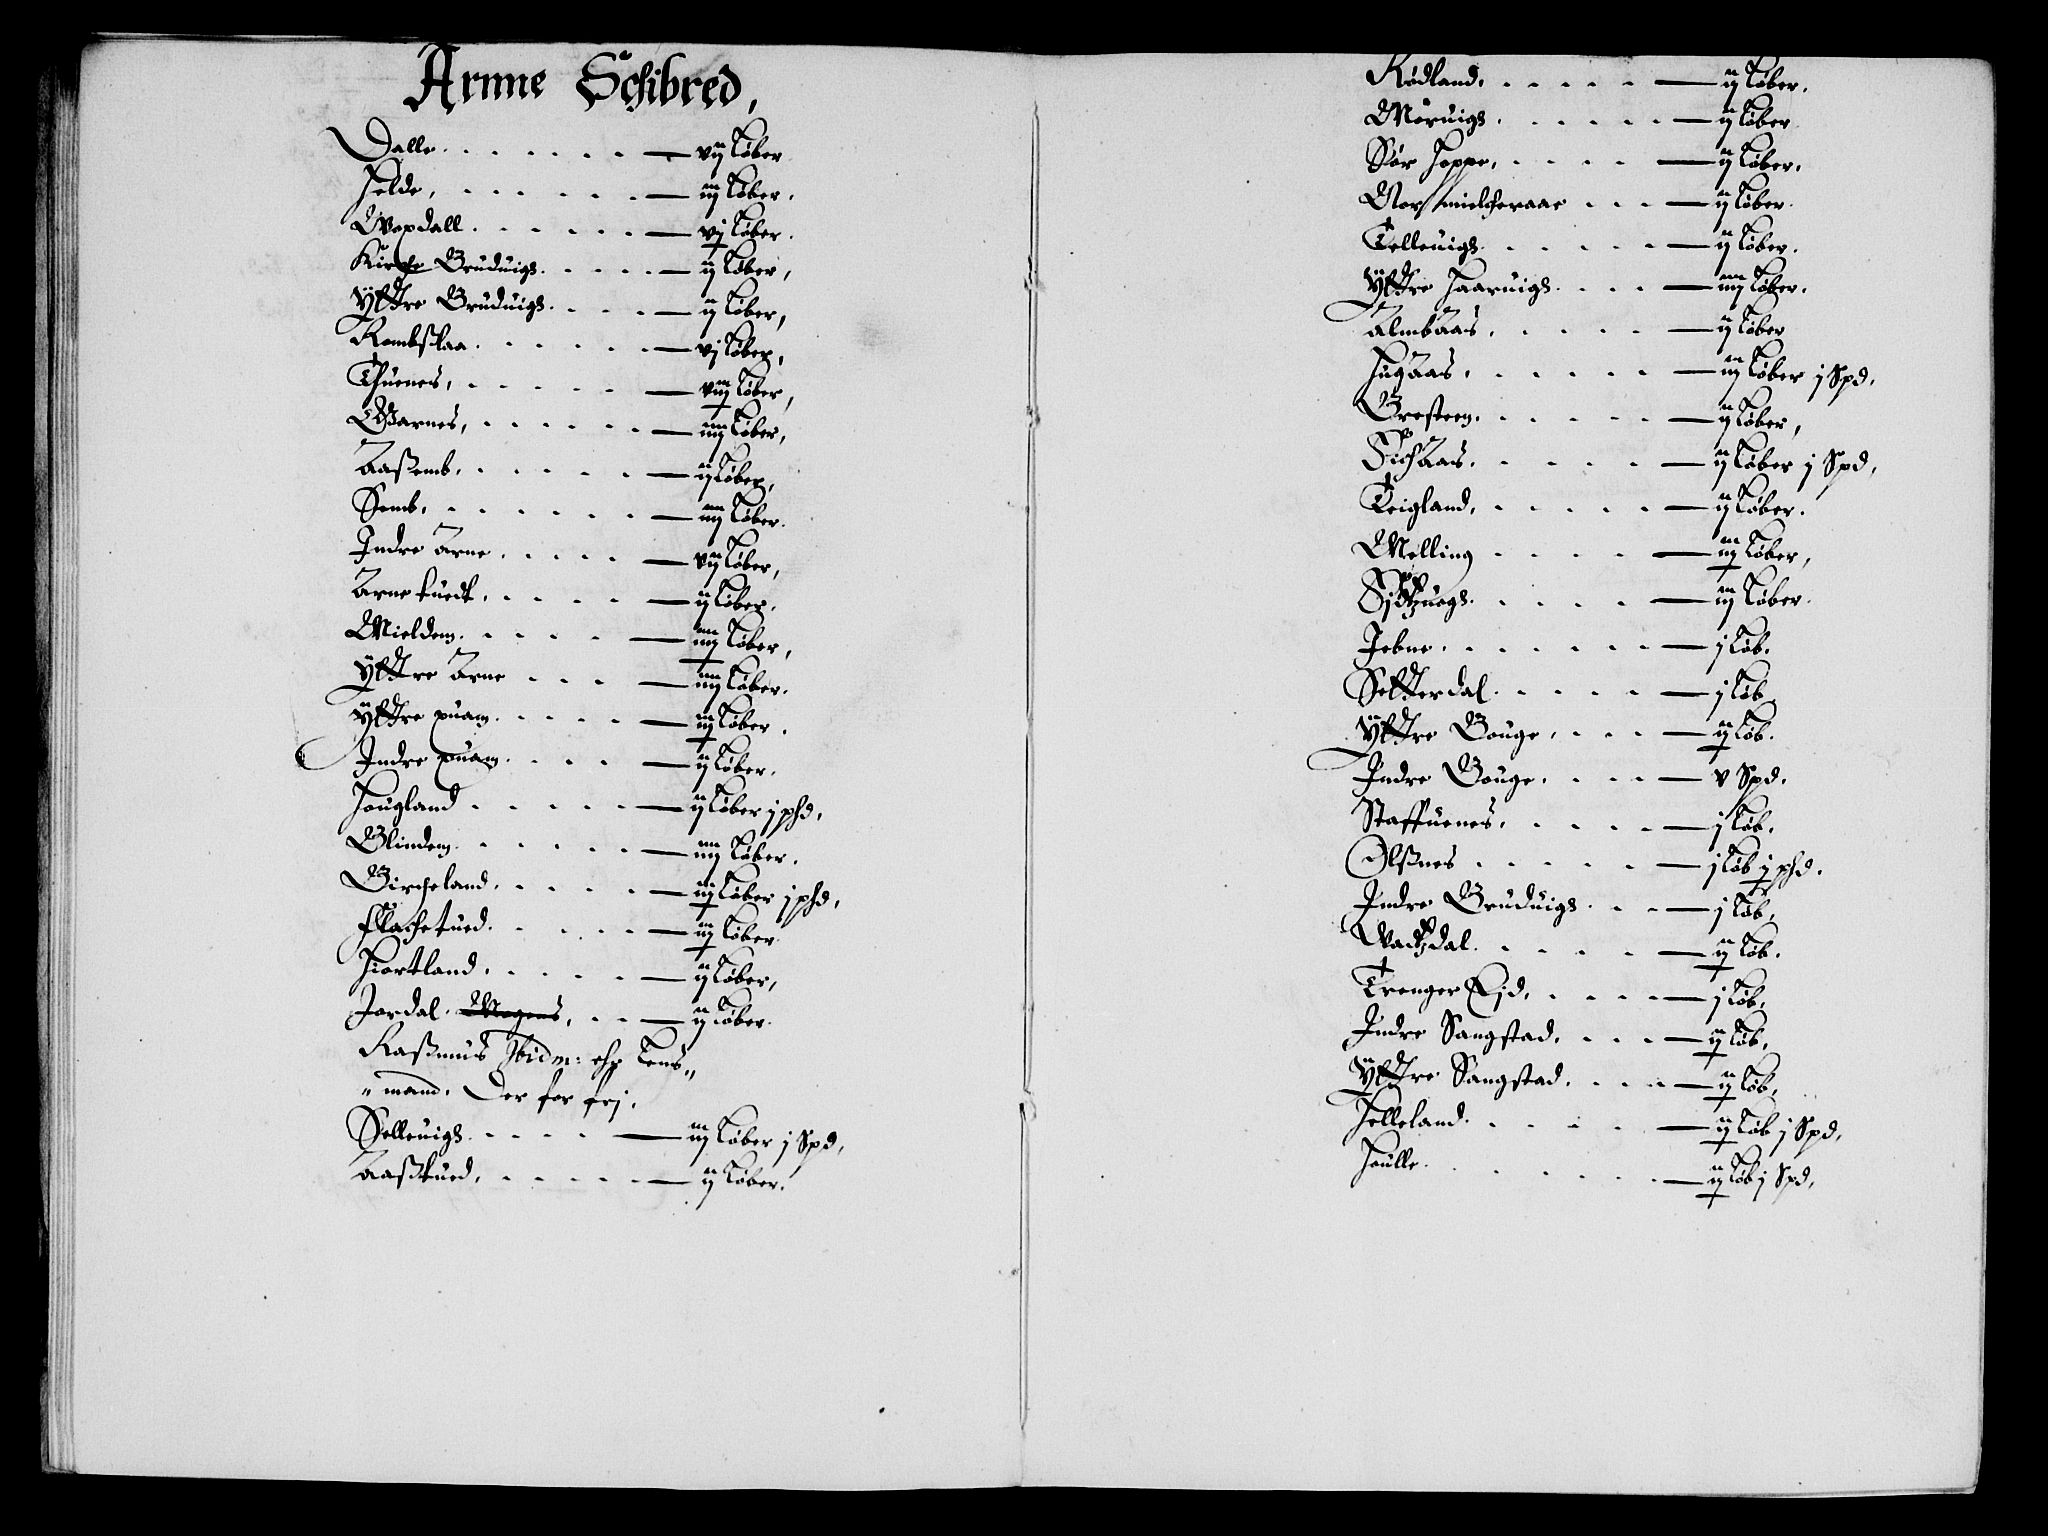 Arnne Schibred,
Dalle. . . . . . . — vij Løber
Helde, . . . . . . — iij Løber.
Wopdall. . . . . . — vj Løber.
Kirche Bruduigh. . . . . — ij Løber,
Ÿstre Bruduigh. . . . . — ij Løber,
Rombslaa. . . . . . — vj Løber,
Thuenes, . . . . . — viij Løber,
Garnes, . . . . . . — iiij Løber,
Aaßemb. . . . . . — ij Løber,
Semb. . . . . . . — iiij Løber.
Indre Arne . . . . . — vij Løber,
Arnetuedt. . . . . — ij Løber.
Mieldem. . . . . — iiij Løber,
Ÿstre Arne . . . — iiij Løber.
Ÿstre puam. . . . . — iij Løber.
Indre puam. . . . . — ij Løber.
Hougland . . . . . — ij Løber j phd.
Blindem. . . . . . — iiij Løber.
Bircheland. . . . . — iij Løber j phd,
Flachetued. . . . . — iij Løber
Hiortland, . . . . . — ij Løber,
Jordal. Mogens, . . . — ij Løber.
Raßmus Ibidm: ehr Lens„
„ mand. Der for frj.
Selleuigh. . . . . — iij Løber j Spd,
Aaßtued, . . . . . — ij Løber.
Rødland, . . . . . — ij Løber.
Møruigh. . . . . . — ij Løber
Sør Hoppe, . . . . — ij Løber.
Nor mielcheraae . . . — ij Løber.
Telleuigh. . . . . . — ij Løber.
Ÿstre Haaruigh. . . . — iiij Løber.
Almbaas. . . . . . — ij Løber
Hugaas, . . . . . — iij Løber j Spd,
Bresteen. . . . . . — ij Løber,
Sichaas. . . . . — ij Løber j Spd,
Teigland, . . . . . — ij Løber.
Melling . . . . — iij Løber,
Jebne. . . . . . . — j Løb.
Setterdal. . . . . — j Løb
Ÿstre Bouge, . . . — ij Løb.
Indre Bouge. . . . — v Spd.
Staffuenes. . . . . — j Løb.
Olßnes . . . . . — j Løb j phd.
Indre Bruduigh . . . — j Løb,
Vatzdal. . . . . — ij Løb.
Trenger Ejd, . . . . — j Løb,
Indre Sangstad. . . . — ij Løb,
Ÿstre Sangstad. . . . — ij Løb,
Helleland. . . . . — ij Løb j Spd,
Houlle. . . . . . — ij Løb j Spd,